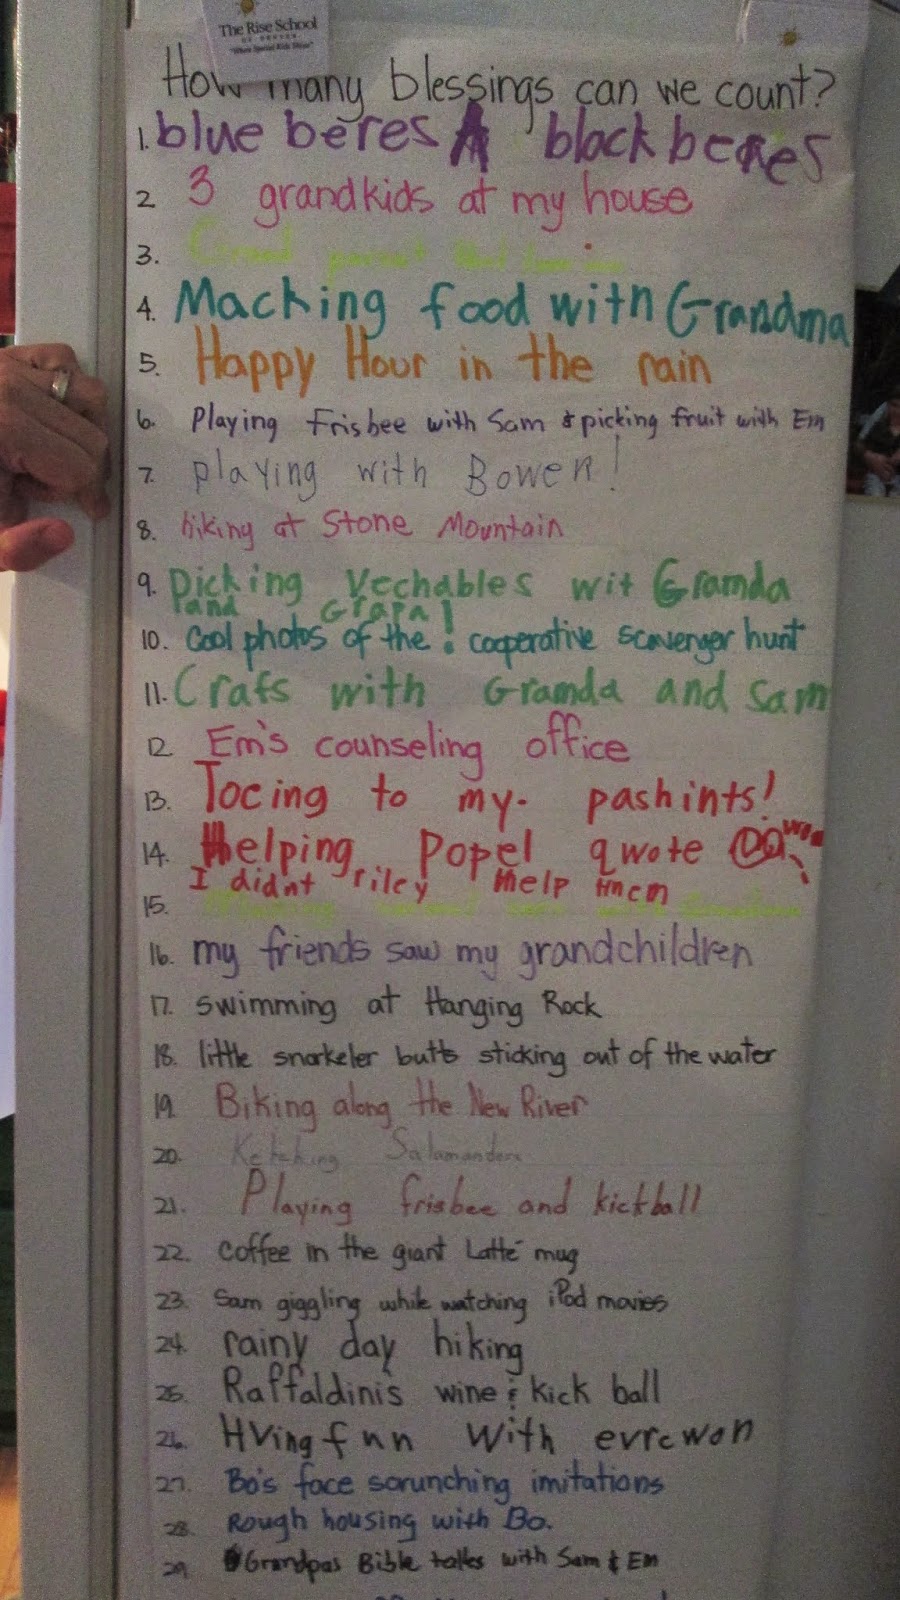 The Rise School
OF DENVER
"Where Special Kids Shine"
How many blessings can we count?
1. blue beres A black beres
2. 3 grandkids at my house
3. Grand parint that
4. Macking food with Grandma
5. Happy Hour in the rain
6. Playing Frisbee with Sam & picking fruit with Em
7. playing with Bowen!
8. hiking at Stone Mountain
9. Picking Vechables wit Gramda
and Grapa!
10. Cool photos of the! cooperative scavenger hunt
11. Crafs with Gramda and Sam
12. Em's counseling office
13. Tocing to my pashints!
14. Helping Popel qwote
I didnt riley Help them
15.
16. my friends saw my grandchildren
17. swimming at Hanging Rock
18. little snorkeler butts sticking out of the water
19. Biking along the New River
20. Ketching Salamanders
21. Playing frisbee and kickball
22. coffee in the giant Latté mug
23. Sam giggling while watching iPod movies
24. rainy day hiking
25. Raffaldini's wine & kick ball
26. HVing fun With evrewon
27. Bo's face scrunching imitations
28. Rough housing with Bo.
29. Grandpas Bible talks with Sam & Em